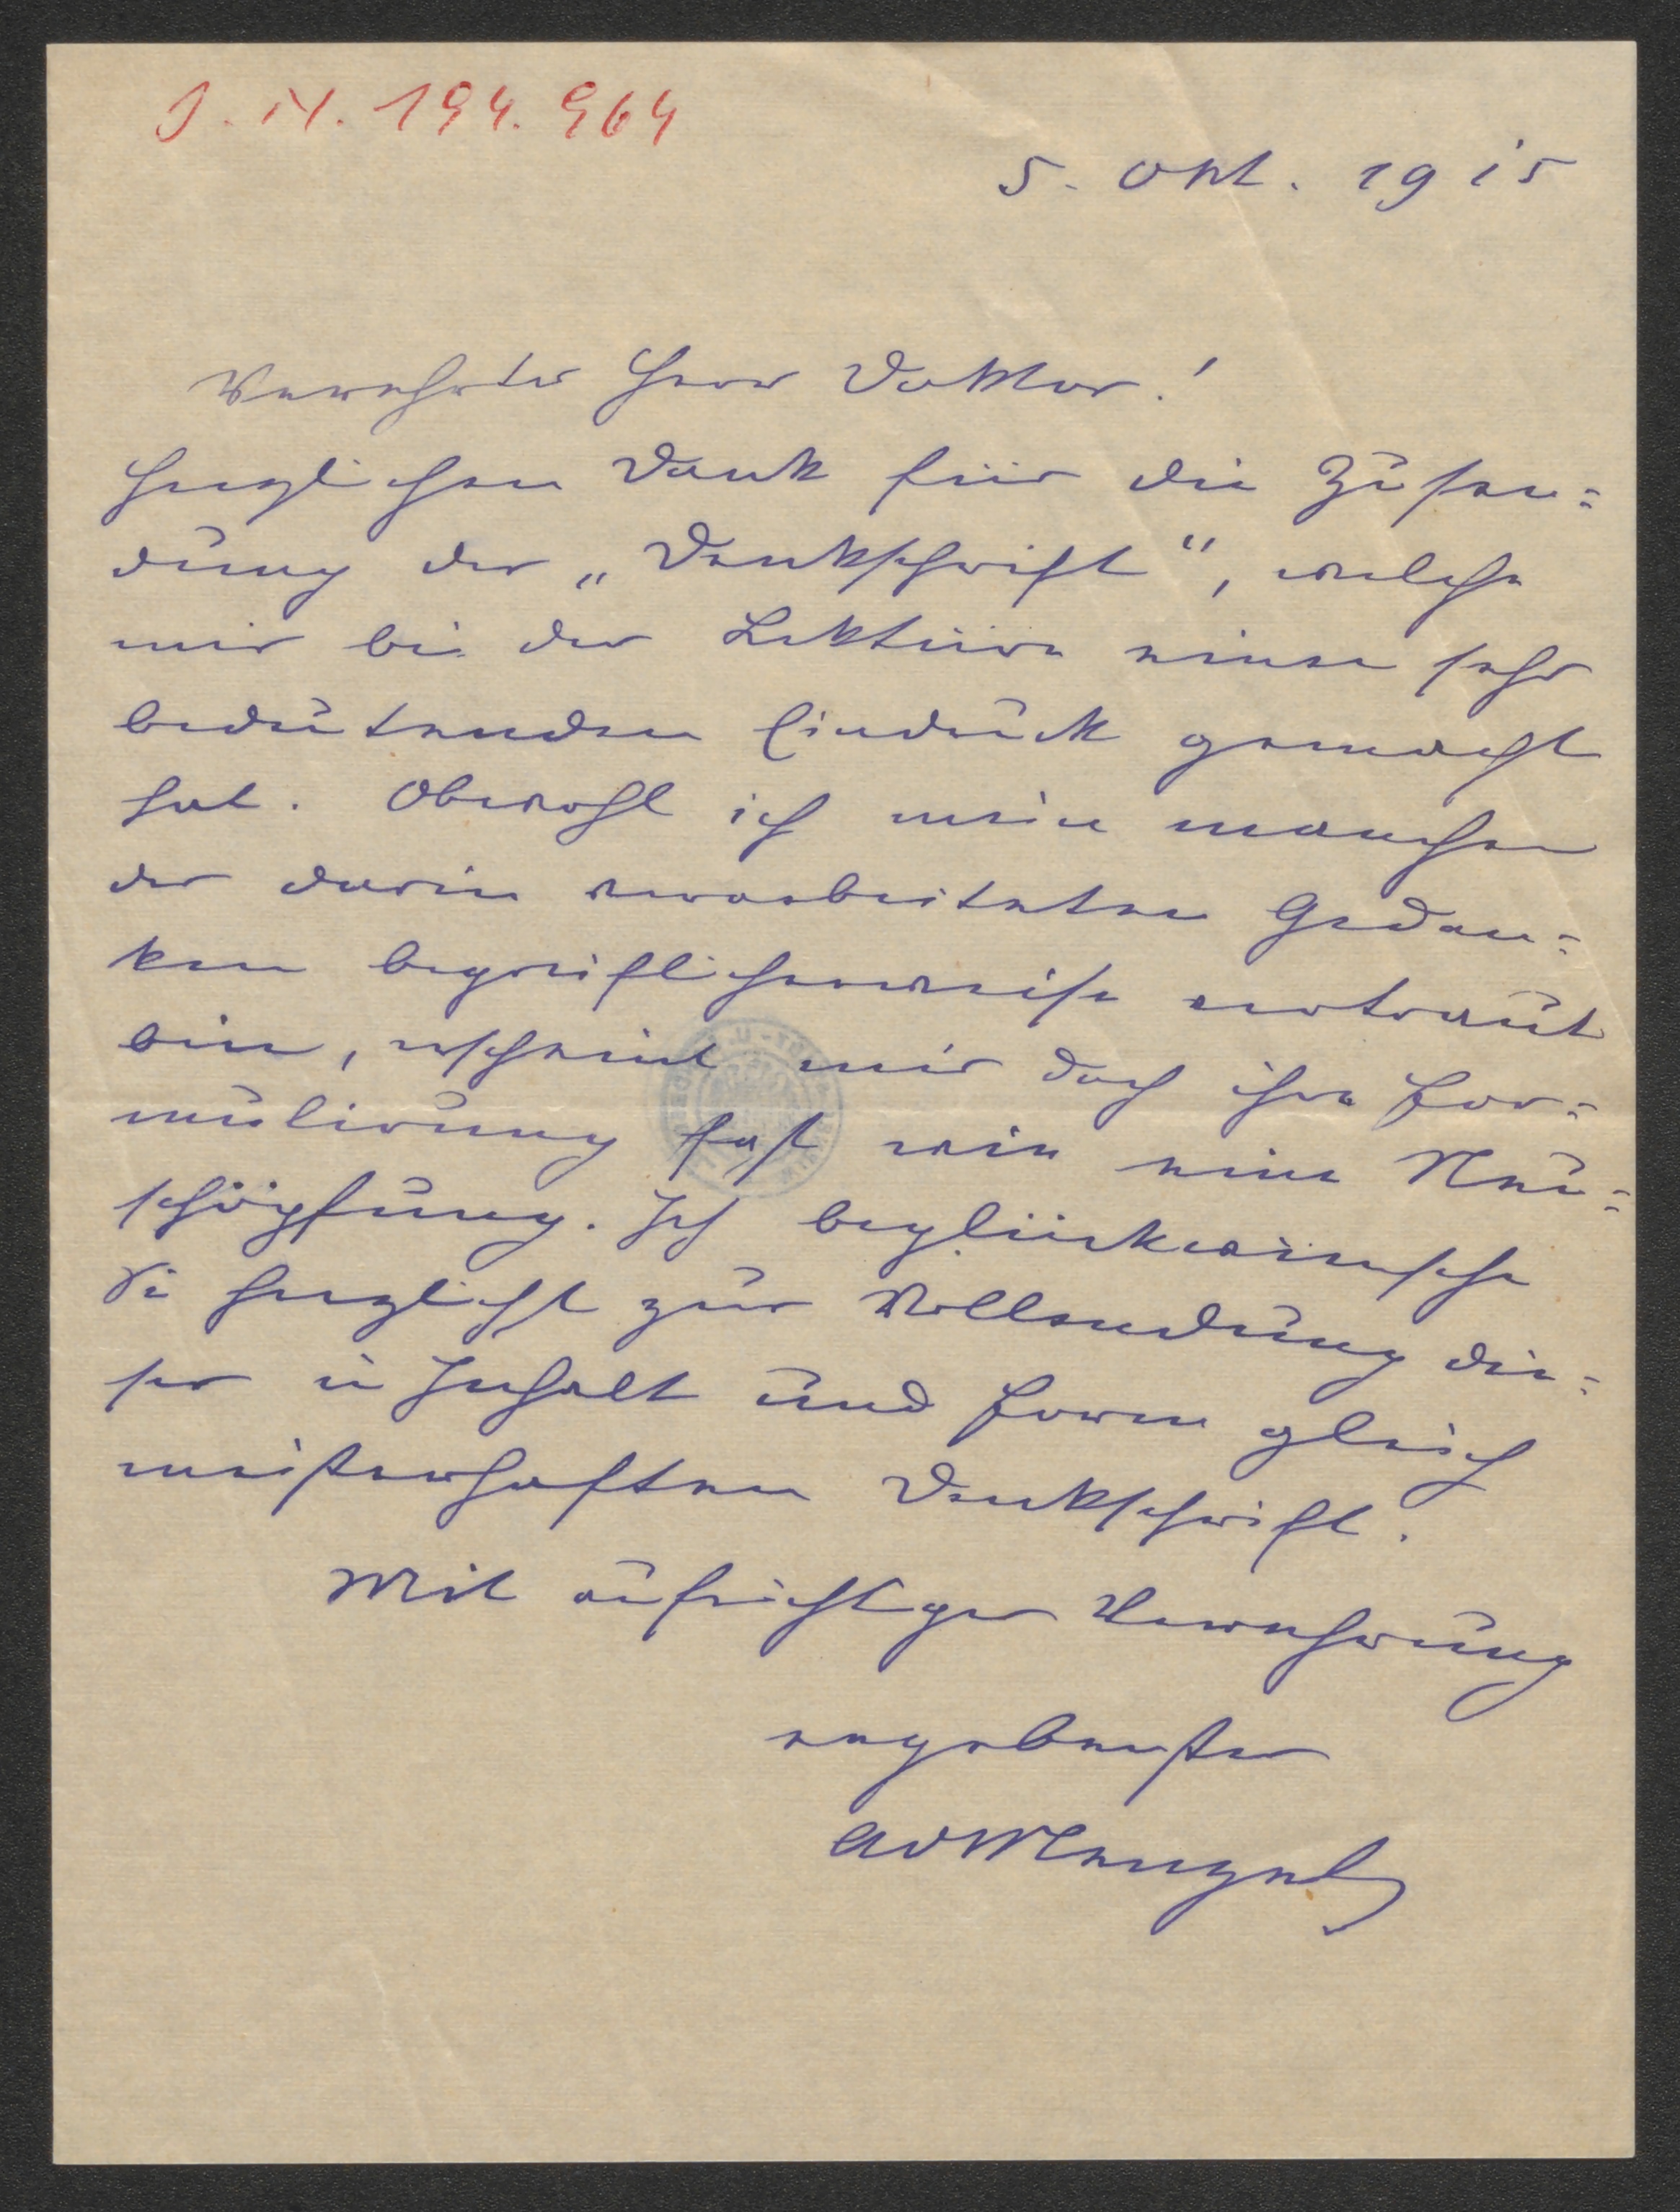 J. N. 194.964
5. Okt. 1915
Verehrter Herr Doktor!
Herzlichen Dank für die Zusen=
dung der „Denkschrift“, welche
mir bei der Lektüre einen sehr
bedeutenden Eindruck gemacht
hat. Obwohl ich mein manchen
der darin verarbeiteten Gedan=
ken begreiflicherweise vertraut
bin, erscheint mir doch ihre For=
mulirung fast wie eine Neu=
schöpfung. Ich beglückwünsche
Sie herzlichst zur Vollendung die=
ser in Inhalt und Form gleich
meisterhaften Denkschrift.
Mit aufrichtiger Verehrung
ergebenster
AdMenzel